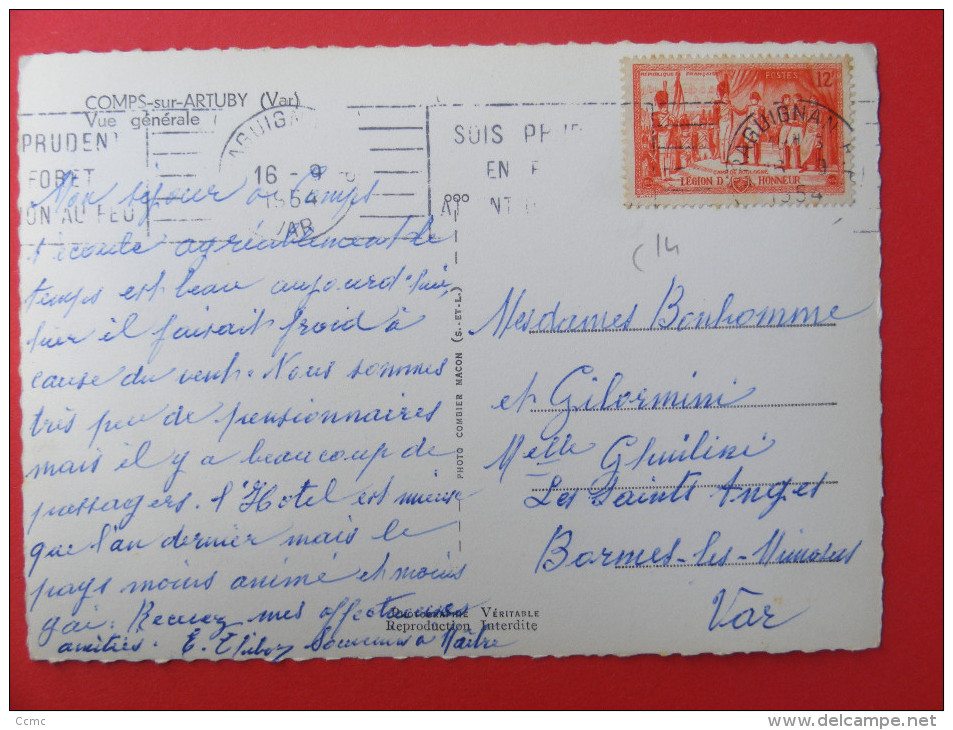 COMPS-sur-ARTUBY (Var)
Vue générale
PRUDEN
FORET
ON AU FEU
AGUIGN
16 - 9
1954
VAR
SOIS PR
EN F
A NT
REPUBLIQUE FRANÇAISE POSTES 12F
CAMP DE BOULOGNE
LÉGION D'HONNEUR
RAGUIGNAN
1954
c14
Mon séjour à Comps
s'écoule agréablement le
temps est beau aujourd'hui,
hier il faisait froid à
cause du vent. Nous sommes
très peu de pensionnaires
mais il y a beaucoup de
passagers. l'Hotel est mieux
que l'an dernier mais le
pays moins animé et moins
gai. Recevez mes affectueuses
amitiés. E. Souvenirs à
PHOTO COMBIER MACON (S.-ET-L.)
PHOTOGRAPHIE VÉRITABLE
Reproduction Interdite
Mesdames Bonhomme
et Gilormini
Melle Ghilini
Les Saints Anges
Bormes-les-Mimosas
Var
Ccmc
delcampe.net